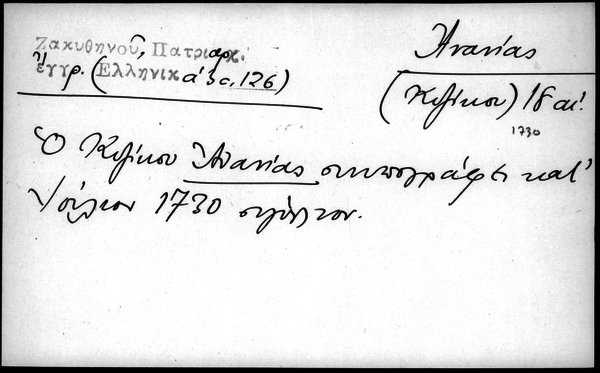 Ζακυθηνοῦ, Πατριαρχ.
ἔγγρ. (Ἑλληνικά 3ος, 126)
Ἀνανίας
(Κυζίκου) 18 αἰ.
1730
Ὁ Κυζίκου Ἀνανίας συνυπογράφει κατ'
Ἰούλιον 1730 σιγίλλιον.